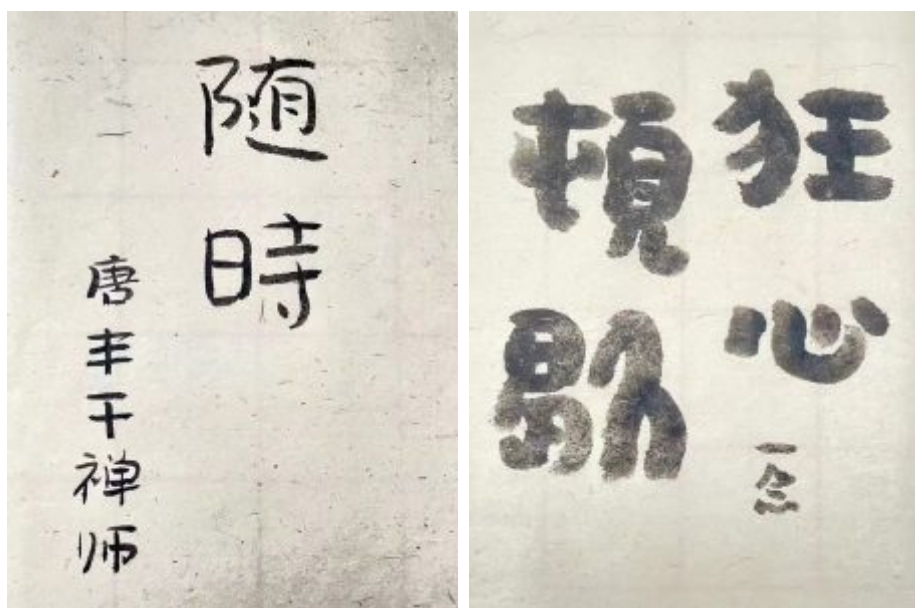 随時
唐丰干禅师
狂心
頓歇
一念